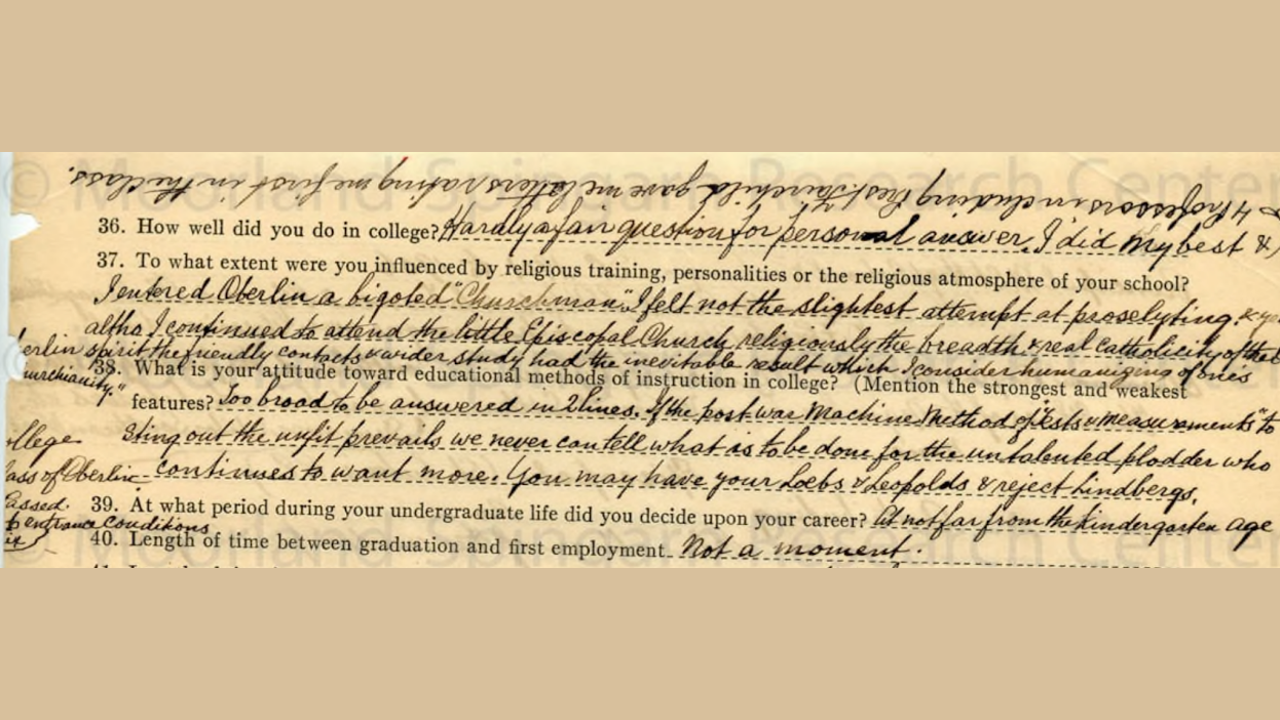 36. How well did you do in college? Hardly a fair question for personal answer. I did my best &
& 4 Professors including Prest Fairchild gave me letters rating me first in the class.
37. To what extent were you influenced by religious training, personalities or the religious atmosphere of your school?
I entered Oberlin a bigoted "Churchman". I felt not the slightest attempt at proselyting. &
altho I continued to attend the little Episcopal Church religiously the breadth & real catholicity of that
erlin spirit the friendly contacts & wider study had the inevitable result which I consider humanizing of one's
urchianity."
38. What is your attitude toward educational methods of instruction in college? (Mention the strongest and weakest
features? Too broad to be answered in 2 lines. If the post war Machine Method of "Tests & measurements" to
sting out the unfit prevails we never can tell what is to be done for the untalented plodder who
continues to want more. You may have your Loebs & Leopolds & reject Lindbergs.
llege
ass of Oberlin
assed
entrance conditions
39. At what period during your undergraduate life did you decide upon your career? At not far from the kindergarten age
40. Length of time between graduation and first employment Not a moment.
Moorland Spingarn Research Center